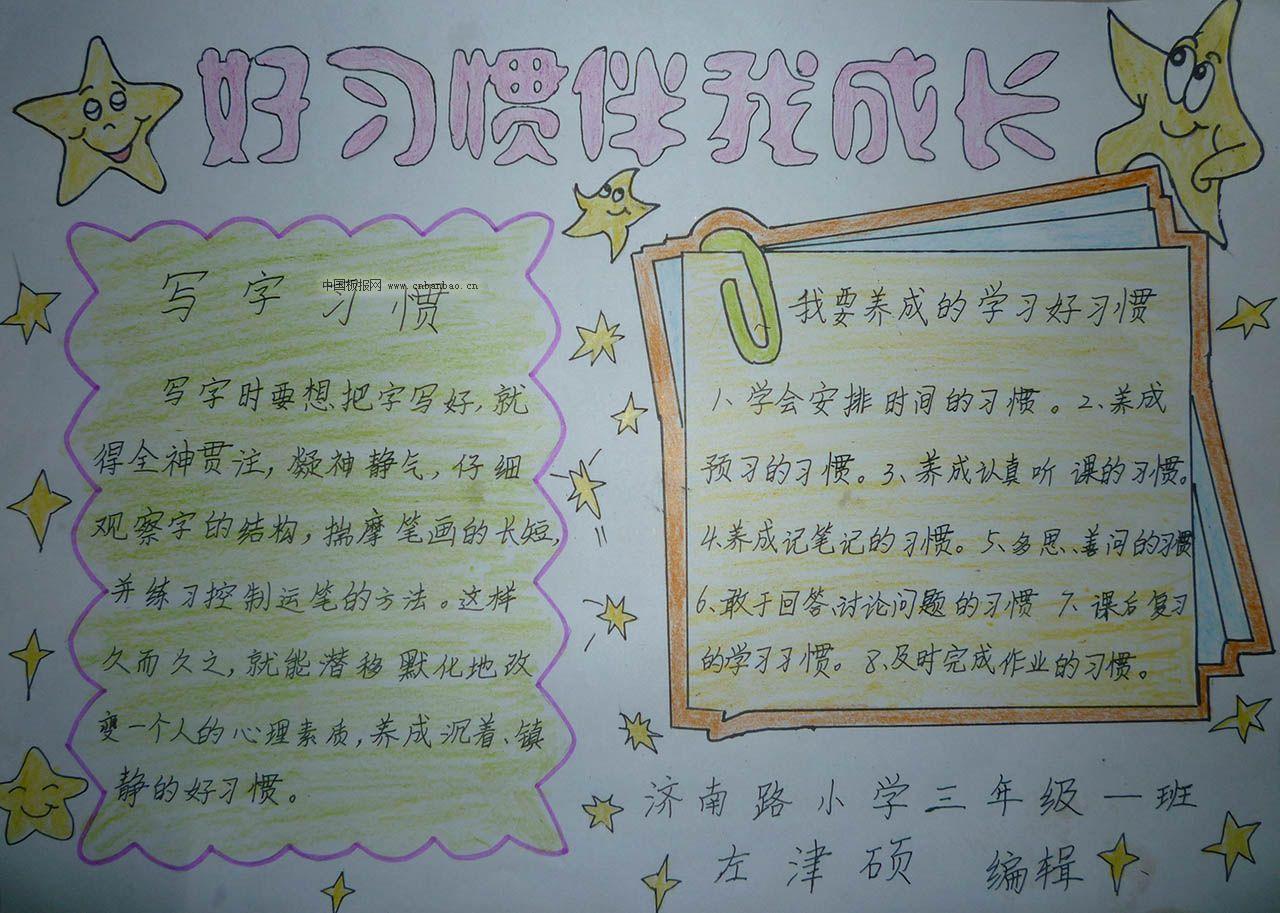 好习惯伴我成长
写字习惯
中国板报网 www.cnbanbao.cn
写字时要想把字写好，就
得全神贯注，凝神静气，仔细
观察字的结构，揣摩笔画的长短，
并练习控制运笔的方法。这样
久而久之，就能潜移默化地改
变一个人的心理素质，养成沉着、镇
静的好习惯。
我要养成的学习好习惯
1、学会安排时间的习惯。2、养成
预习的习惯。3、养成认真听课的习惯。
4、养成记笔记的习惯。5、多思、善问的习惯
6、敢于回答、讨论问题的习惯 7、课后复习
的学习习惯。8、及时完成作业的习惯。
济南路小学三年级一班
左津硕 编辑